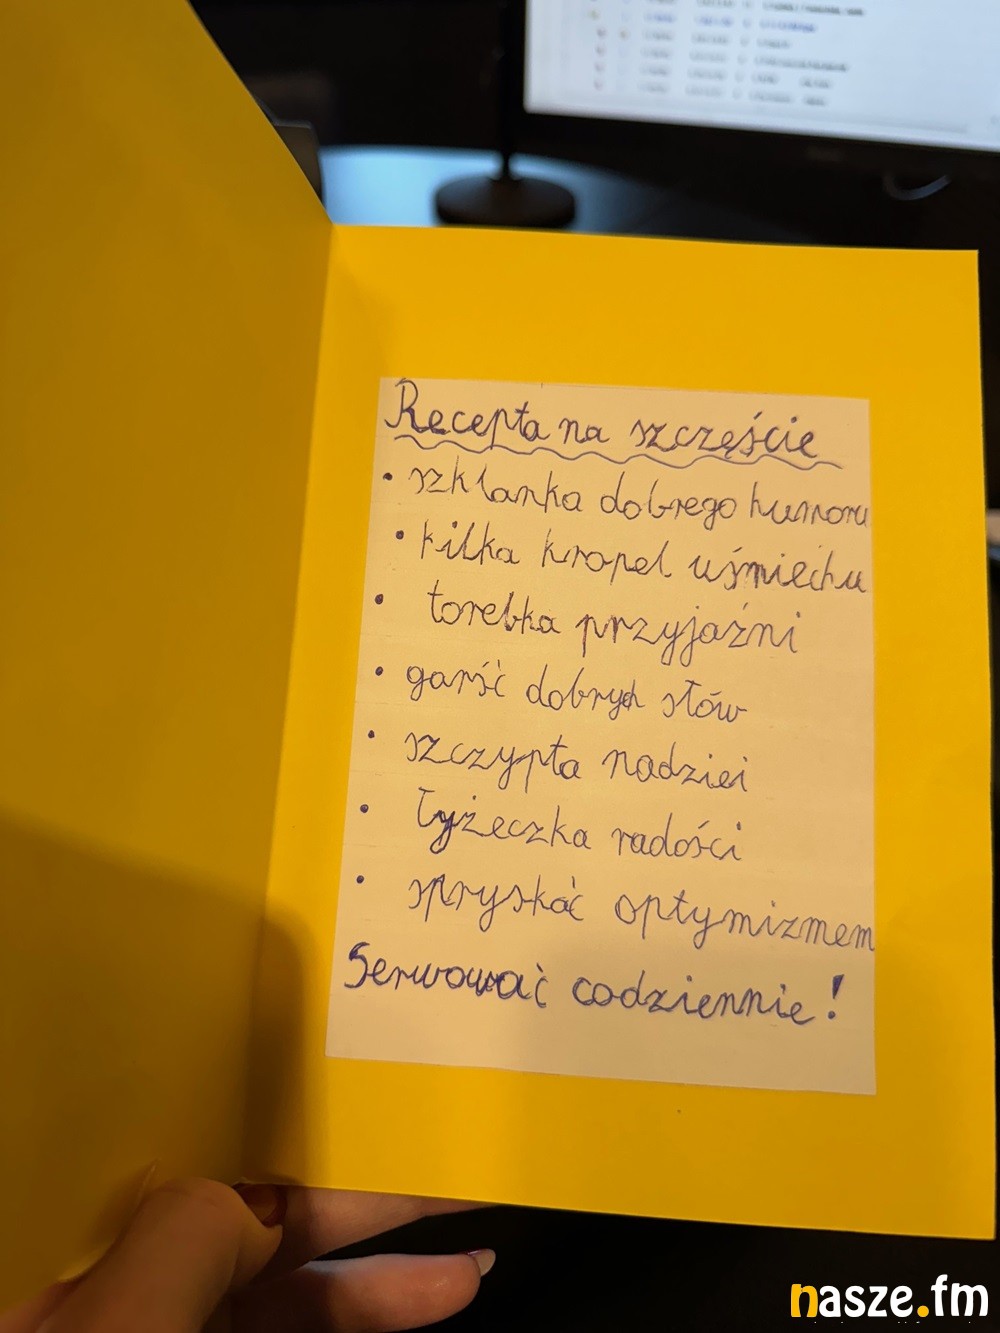 Recepta na szczęście
• szklanka dobrego humoru
• kilka kropel uśmiechu
• torebka przyjaźni
• garść dobrych słów
• szczypta nadziei
• łyżeczka radości
• spryskać optymizmem
Serwować codziennie!
nasze.fm